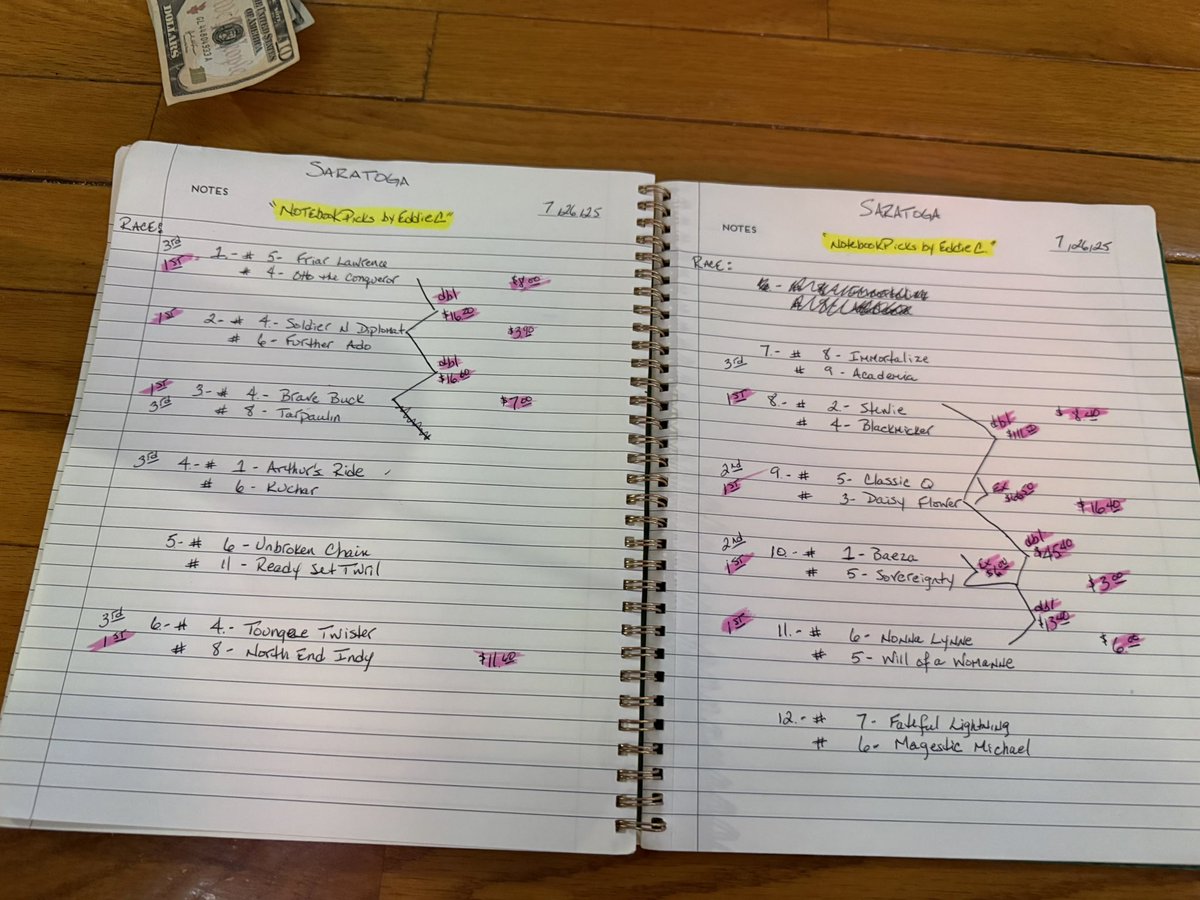 10
THE UNITED STATES
OF AMERICA
GL44804993A
DOLLARS
SARATOGA
NOTES
"NOTEBOOK Picks by Eddie C."
7/26/25
RACE:
3rd 1.- # 5- Friar Lawrence $8.00
1ST # 4- Otto the Conqueror
dbl
$16.20
1ST 2- # 4.- Soldier N Diplomat $3.90
# 6- Further Ado
dbl
$16.60
1ST 3- # 4.- Brave Buck $7.00
3rd # 8- Tarpaulin
3rd 4.- # 1- Arthur's Ride
# 6- Kuchar
5- # 6- Unbroken Chain
# 11- Ready Set Twril
3rd 6.- # 4.- Toungee Twister
1ST # 8- North End Indy $11.60
SARATOGA
NOTES
"NOTEBOOK Picks by Eddie C."
7/26/25
RACE:
7.- # 8- Immortalize
3rd # 9- Academia
1ST 8.- # 2- Stewie $8.40
# 4- Blackmicker
dbl
2nd 9.- # 5- Classic Q
1ST # 3- Daisy Flower $16.40
Ex
dbl
$45.40
2nd 10.- # 1- Baeza
1ST # 5- Sovereignty $3.00
Ex
dbl
$13.40
1ST 11.- # 6- Nonna Lynne $6.00
# 5- Will of a Womanne
12.- # 7- Fateful Lightning
# 6- Magestic Michael